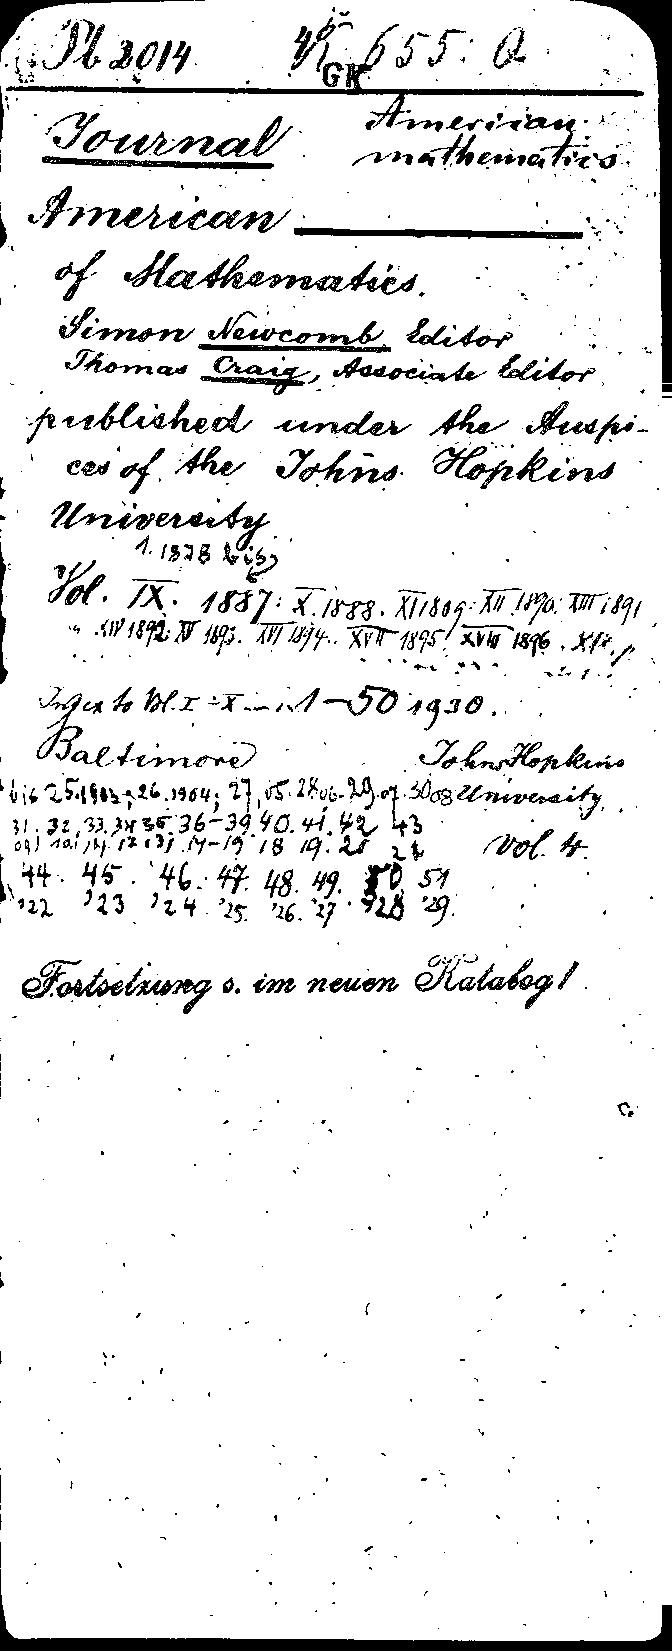 Pb 2014 4° 655: Q
GK
Journal American
mathematics
American
of Mathematics.
Simon Newcomb, Editor
Thomas Craig, Associate Editor
published under the Auspi-
ces of the Johns Hopkins
University
1. 1878 bis
Vol. IX. 1887: X. 1888. XI 1889: XII 1890. XIII 1891
XIV 1892. XV 1893. XVI 1894. XVII 1895. XVIII 1896. XIX
Index to Vol. I-X 1-50 1930.
Baltimore Johns Hopkins
bis 25.1903; 26.1904; 27,05. 28 06. 29 07. 30 08 University
31. 32. 33. 34 35. 36-39. 40. 41. 42 43
09 10 11 12 13 14-19 18 19. 20 21 vol. 4.
44. 45. 46. 47. 48. 49. 50 51
'22 '23 '24 '25. '26. '27 '28 '29.
Fortsetzung s. im neuen Katalog!